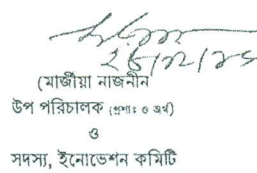 (মার্জীয়া নাজনীন
উপ পরিচালক (প্রশাঃ ও অর্থ)
ও
সদস্য, ইনোভেশন কমিটি